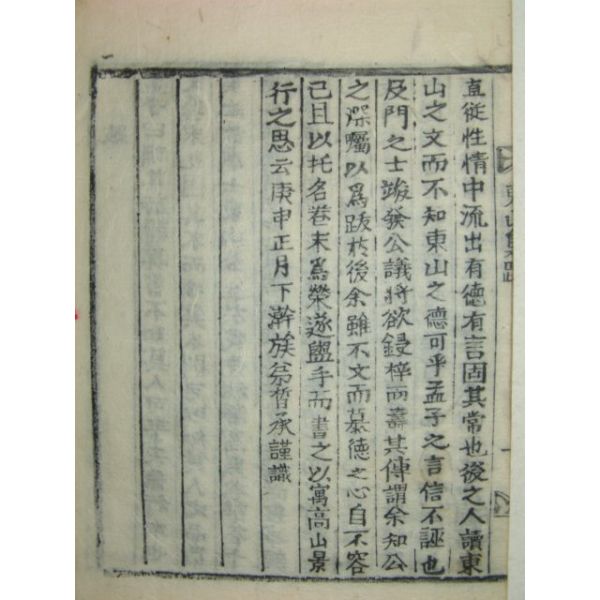 東山集跋
直從性情中流出有德有言固其常也後之人讀東
山之文而不知東山之德可乎孟子之言信不誣也
及門之士竣發公議將欲鋟梓而壽其傳謂余知公
之深囑以爲跋於後余雖不文而慕德之心自不容
已且以托名卷末爲榮遂盥手而書之以寓高山景
行之思云庚申正月下澣族弟晳承謹識